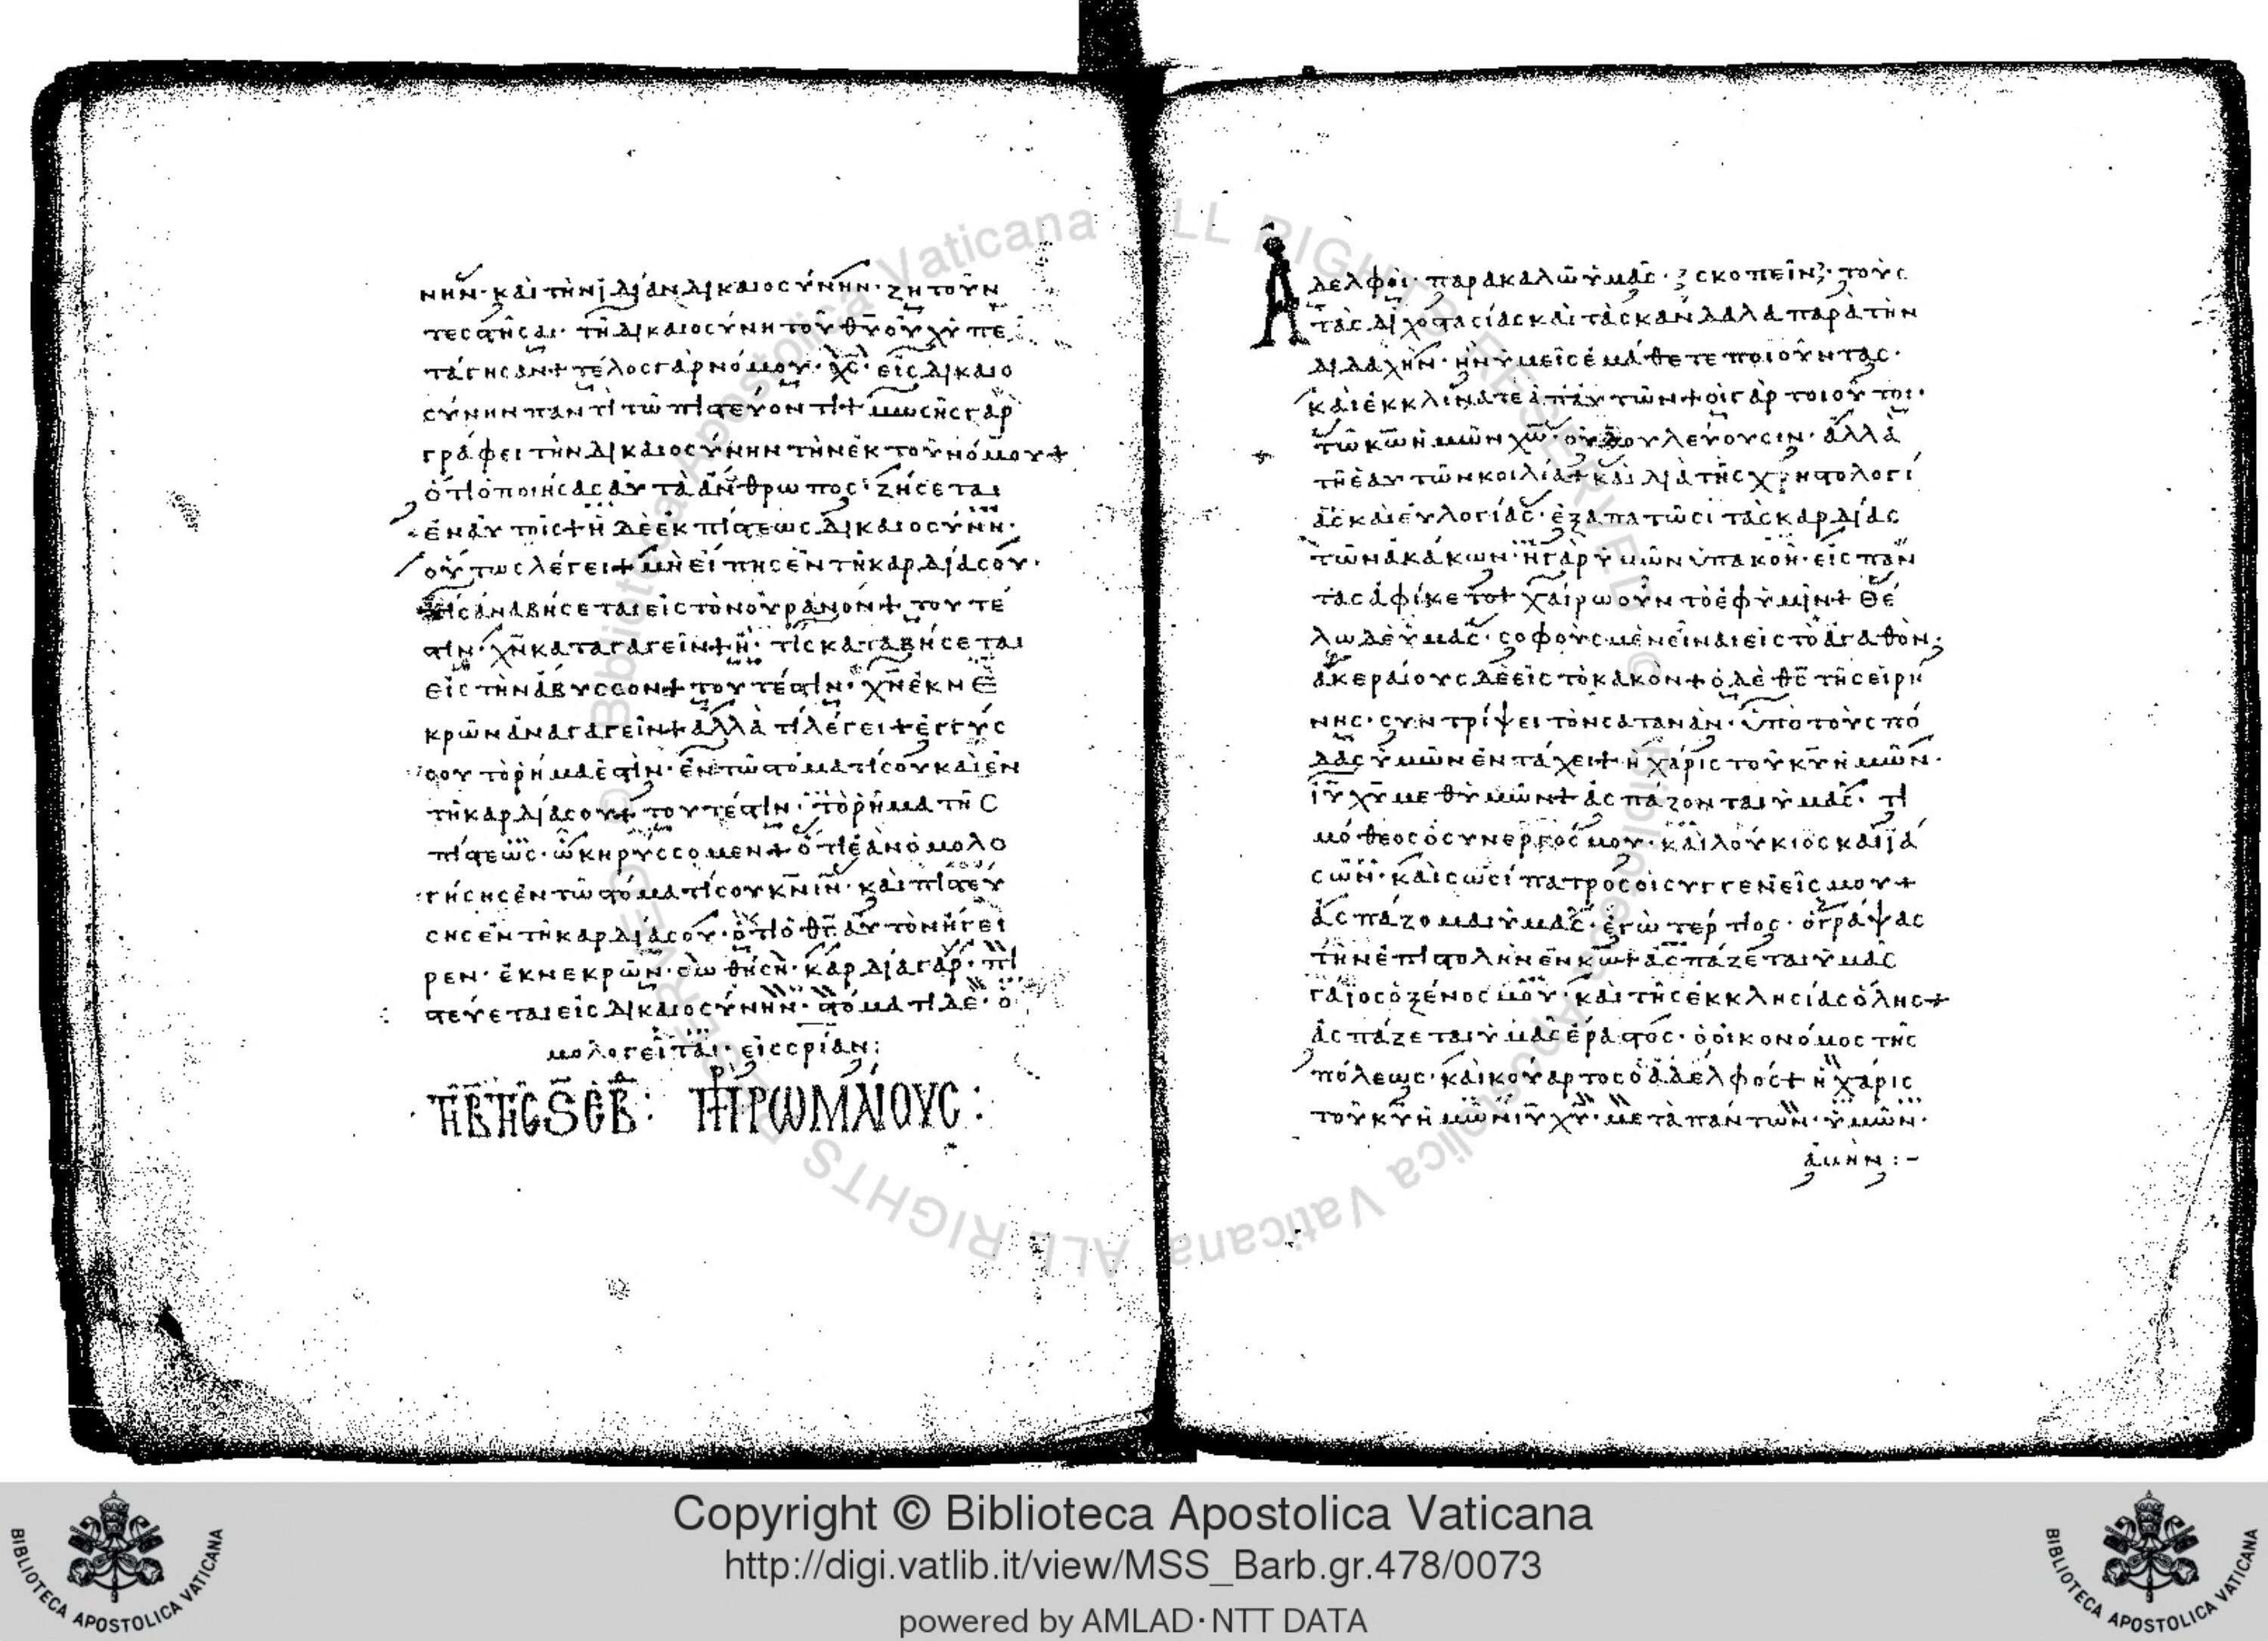 νην· καὶ τὴν ἰδίαν δικαιοσύνην· ζητοῦν
τες στῆσαι· τῆ δικαιοσύνη τοῦ θῡ οὐχ ὑπε
τάγησαν + τέλος γὰρ νόμου· χ̄ς̄· εἰς δικαιο
σύνην παντὶ τῶ πιστεύοντι + μωσῆς γὰρ
γράφει τὴν δικαιοσύνην τὴν ἐκ τοῦ νόμου +
ὅτι ὁ ποιήσας αὐτὰ ἄνθρωπος· ζήσεται
ἐν αὐτοῖς + ἡ δὲ ἐκ πίστεως δικαιοσύνη·
οὕτως λέγει + μὴ εἴπης ἐν τῆ καρδία σου·
τίς ἀναβήσεται εἰς τὸν οὐρανόν + τουτέ
στιν· χ̄ν̄ καταγαγεῖν + ἤ· τίς καταβήσεται
εἰς τὴν ἄβυσσον + τουτέστιν· χ̄ν̄ ἐκ νε
κρῶν ἀναγαγεῖν + ἀλλὰ τί λέγει + ἐγγύς
σου τὸ ρῆμα ἐστὶν· ἐν τῶ στόματί σου καὶ ἐν
τῆ καρδία σου + τουτέστιν· τὸ ρῆμα τῆς
πίστεως· ὃ κηρύσσομεν + ὅτι ἐὰν ὁμολο
γήσης ἐν τῶ στόματί σου κ̄ν̄ ῑν̄· καὶ πιστεύ
σης ἐν τῆ καρδία σου· ὅτι ὁ θ̄ς̄ αὐτὸν ἤγει
ρεν· ἐκ νεκρῶν· σωθήση· καρδία γάρ· πι
στεύεται εἰς δικαιοσύνην· στόματι δὲ· ὁ
μολογεῖται· εἰς σρίαν;
ΠΡΩΜΑΙΟΥΣ:
Ἀδελφοὶ· παρακαλῶ ὑμᾶς· σκοπεῖν· τοὺς
τὰς διχοστασίας καὶ τὰ σκάνδαλα παρὰ τὴν
διδαχὴν· ἣν ὑμεῖς ἐμάθετε ποιοῦντας·
καὶ ἐκκλίνατε ἀπ' αὐτῶν + οἱ γὰρ τοιοῦτοι·
τῶ κ̄ω̄ ἡμῶν χ̄ω̄· οὐ δουλεύουσιν· ἀλλὰ
τῆ ἑαυτῶν κοιλία + καὶ διὰ τῆς χρηστολογί
ας καὶ εὐλογίας· ἐξαπατῶσι τὰς καρδίας
τῶν ἀκάκων· ἡ γὰρ ὑμῶν ὑπακοὴ· εἰς πάν
τας ἀφίκετο + χαίρω οὖν τὸ ἐφ' ὑμῖν + θέ
λω δὲ ὑμᾶς· σοφοὺς μὲν εἶναι εἰς τὸ ἀγαθὸν·
ἀκεραίους δὲ εἰς τὸ κακὸν + ὁ δὲ θ̄ς̄ τῆς εἰρή
νης· συντρίψει τὸν σατανᾶν· ὑπὸ τοὺς πό
δας ὑμῶν ἐν τάχει + ἡ χάρις τοῦ κῡ ἡμῶν·
ῑῡ χ̄ῡ μεθ' ὑμῶν + ἀσπάζονται ὑμᾶς· τι
μόθεος ὁ συνεργός μου· καὶ λούκιος καὶ ἰά
σων· καὶ σωσίπατρος οἱ συγγενεῖς μου +
ἀσπάζομαι ὑμᾶς· ἐγὼ τέρτιος· ὁ γράψας
τὴν ἐπιστολὴν ἐν κ̄ω̄ + ἀσπάζεται ὑμᾶς
γάϊος ὁ ξένος μου· καὶ τῆς ἐκκλησίας ὅλης +
ἀσπάζεται ὑμᾶς ἔραστος· ὁ οἰκονόμος τῆς
πόλεως· καὶ κούαρτος ὁ ἀδελφός + ἡ χάρις
τοῦ κῡ ἡμῶν ῑῡ χ̄ῡ· μετὰ πάντων· ὑμῶν·
ἀμήν :-
Copyright © Biblioteca Apostolica Vaticana
http://digi.vatlib.it/view/MSS_Barb.gr.478/0073
powered by AMLAD·NTT DATA
BIBLIOTECA APOSTOLICA VATICANA
BIBLIOTECA APOSTOLICA VATICANA